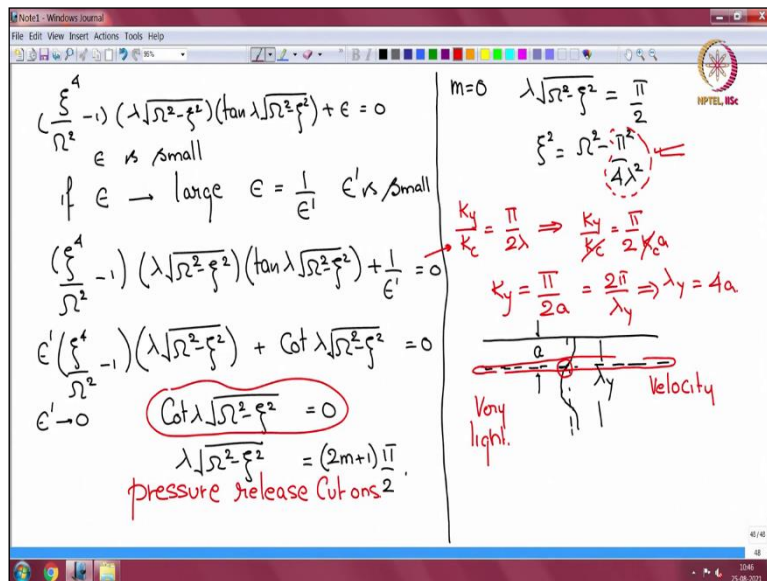 Note1 - Windows Journal
File Edit View Insert Actions Tools Help
NPTEL, IISc
(ξ⁴/Ω² -1) (λ√Ω²-ξ²)(tan λ√Ω²-ξ²) + ϵ = 0
ϵ is small
if ϵ → large ϵ = 1/ϵ' ϵ' is small
(ξ⁴/Ω² -1) (λ√Ω²-ξ²)(tan λ√Ω²-ξ²) + 1/ϵ' = 0
ϵ'(ξ⁴/Ω² -1)(λ√Ω²-ξ²) + Cot λ√Ω²-ξ² = 0
ϵ' → 0 Cot λ√Ω²-ξ² = 0
λ√Ω²-ξ² = (2m+1) π/2.
pressure release Cut ons
m=0 λ√Ω²-ξ² = π/2
ξ² = Ω² - π²/4λ²
Ky/Kc = π/2λ ⇒ Ky/Kc = π/2Kca
Ky = π/2a = 2π/λy ⇒ λy = 4a
a
λy
Very light.
Velocity
48/48
48
10:46
25-08-2021